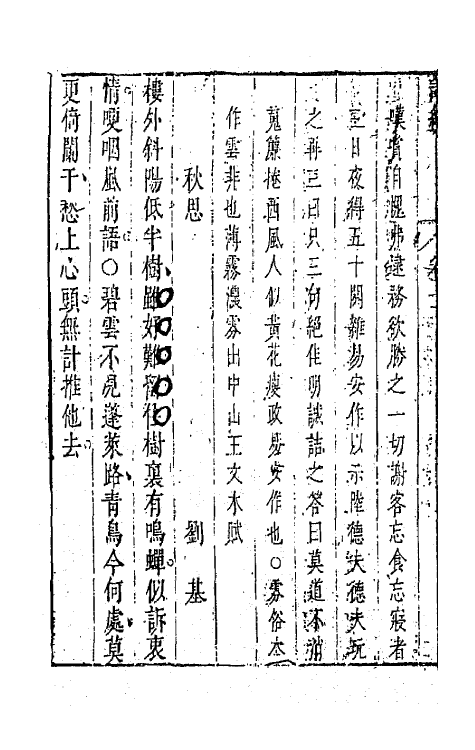 嘆賞自愧弗逮務欲勝之一切謝客忘食忘寢者
三日夜得五十闋雜易安作以示陸德夫德夫玩
之再三曰只三句絕佳明誠詰之答曰莫道不消
䰟簾捲西風人似黃花瘦政易安作也○霧俗本
作雲非也薄霧濃雰出中山王文木賦
秋思　劉基
樓外斜陽低半樹雖好難留住樹裏有鳴蟬似訴衷
情哽咽風前語○碧雲不見蓬萊路青鳥今何處莫
更倚闌干愁上心頭無計推他去